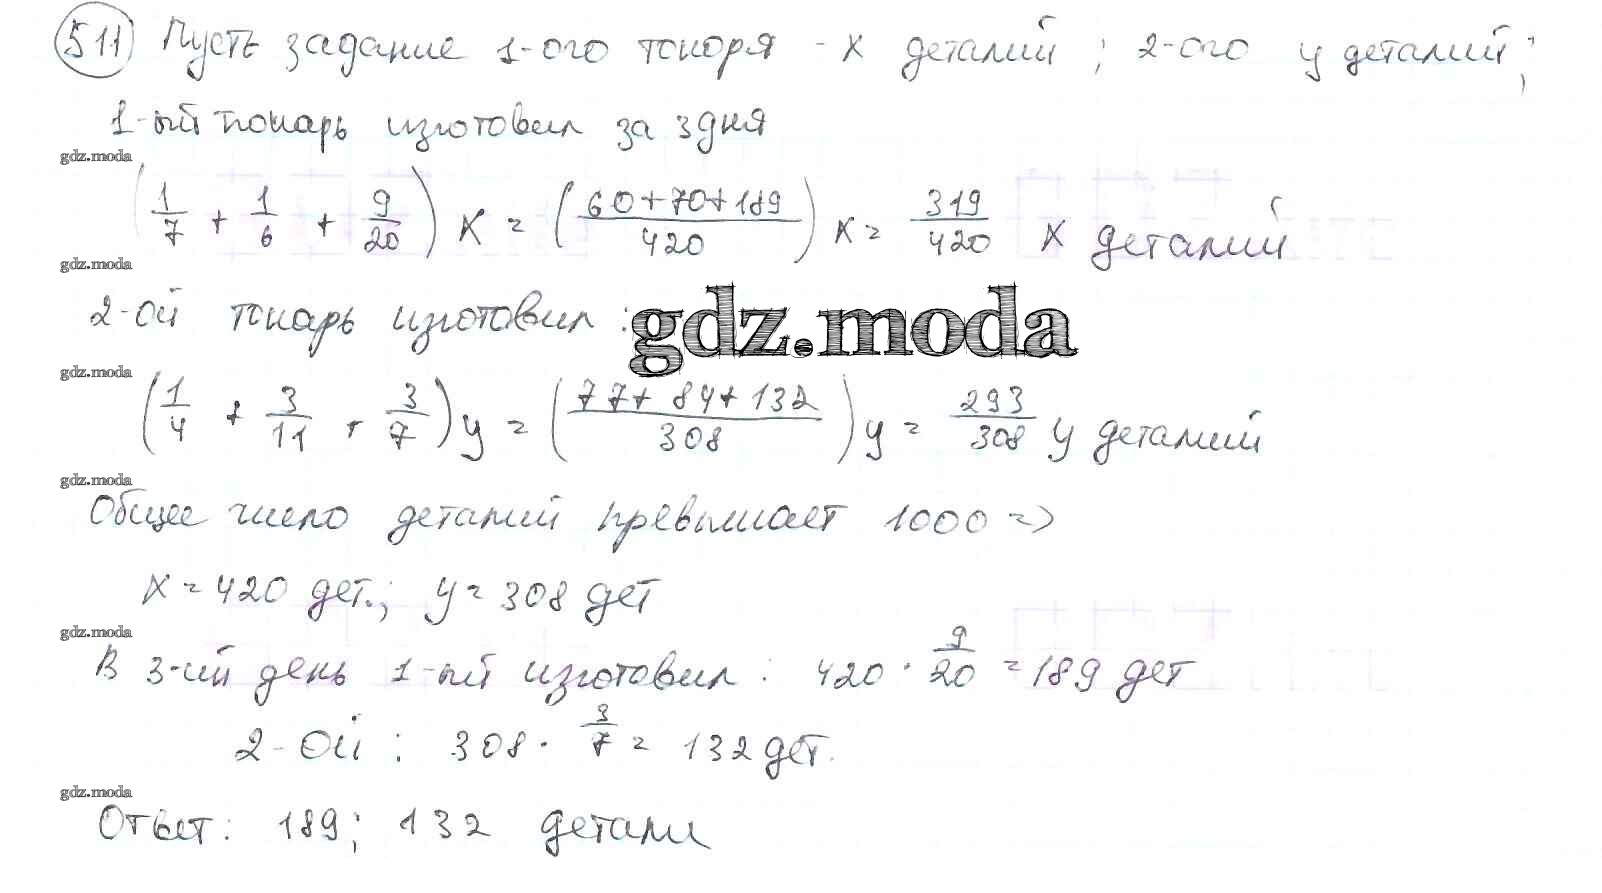 511 Пусть задание 1-ого токоря - x деталий; 2-ого y деталий;
1-ый токарь изготовил за 3 дня
gdz.moda
(1/7 + 1/6 + 9/20) x = ((60+70+189)/420) x = 319/420 x деталий
gdz.moda
2-ой токарь изготовил:
gdz.moda
gdz.moda
(1/4 + 3/11 + 3/7) y = ((77+84+132)/308) y = 293/308 y деталий
gdz.moda
Общее число деталий превышает 1000 =>
x = 420 дет.; y = 308 дет
gdz.moda
В 3-ий день 1-ый изготовил: 420 · 9/20 = 189 дет
2-ой: 308 · 3/7 = 132 дет.
gdz.moda
Ответ: 189; 132 детали